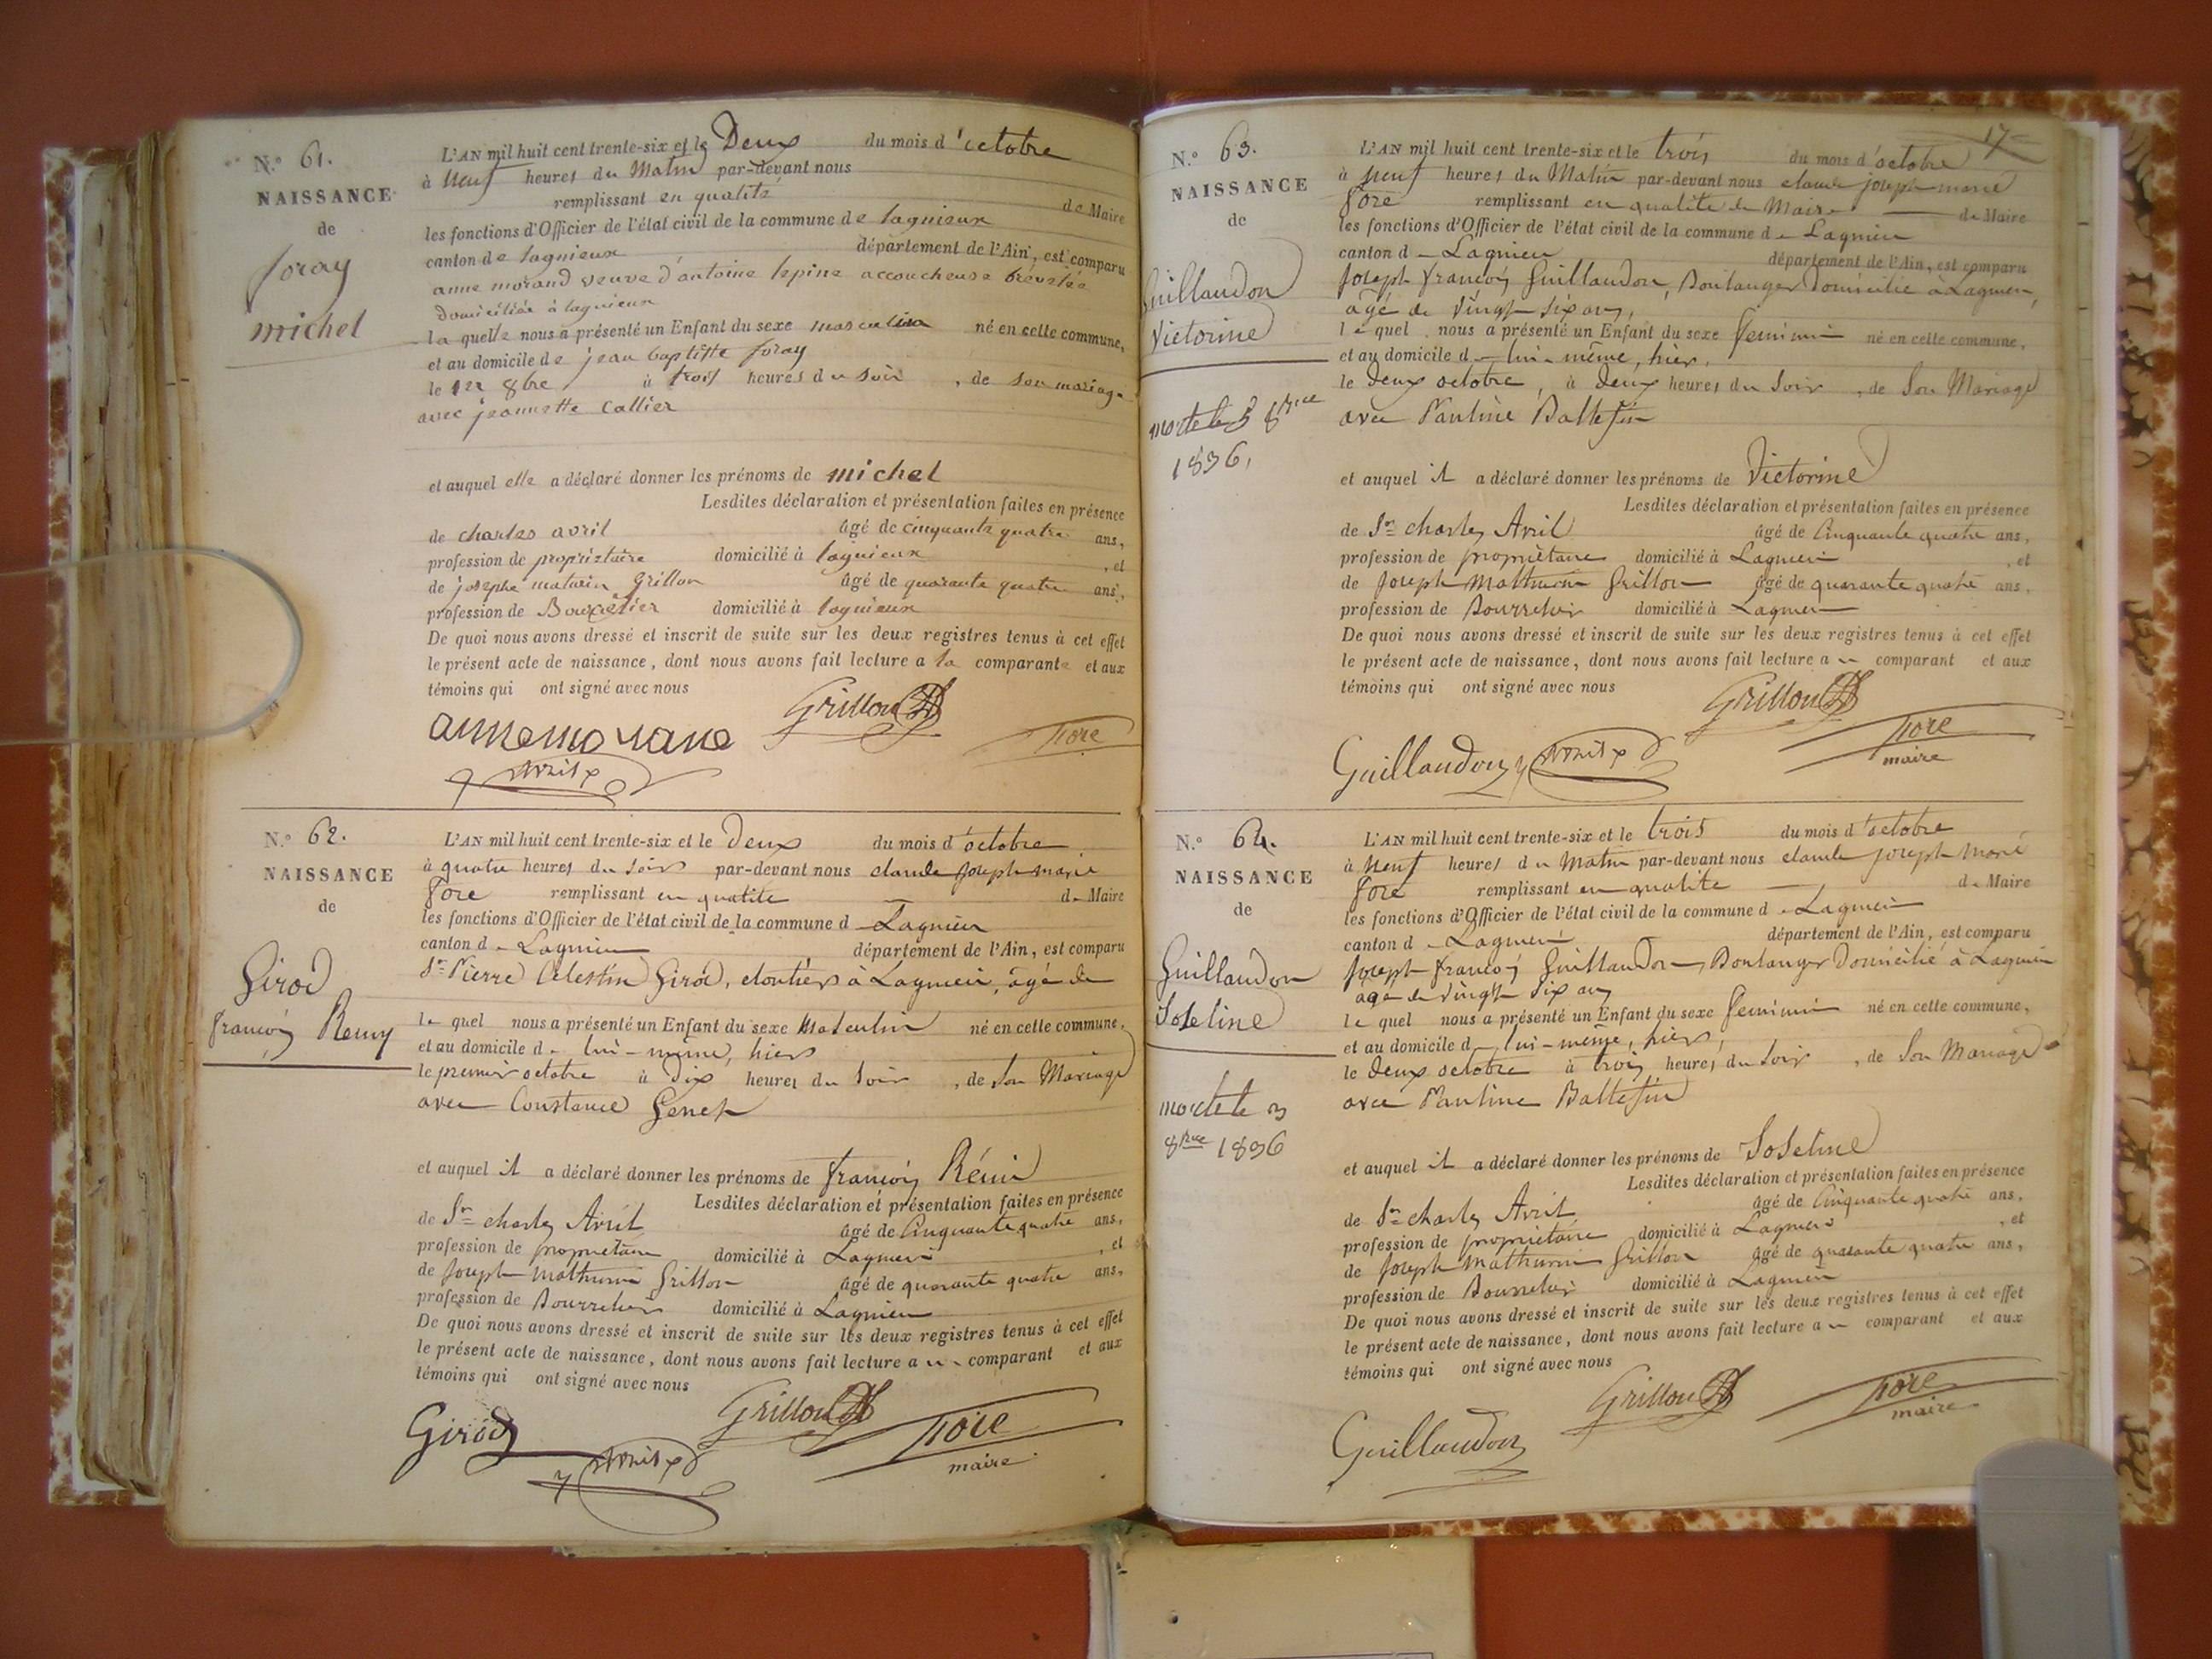 N.º 61.
NAISSANCE
de
foray
michel
L'AN mil huit cent trente-six et le Deux du mois d'octobre
à neuf heures du Matin par-devant nous
remplissant en qualité de Maire
les fonctions d'Officier de l'état civil de la commune de lagnieux
canton de lagnieux département de l'Ain, est comparu
anne morand veuve d'antoine lepine accoucheuse brévetée
domiciliée à lagnieux
la quelle nous a présenté un Enfant du sexe masculin né en cette commune,
et au domicile de jean baptiste foray
le 1er 8bre à trois heures du soir, de son mariage
avec jeannette Callier
et auquel elle a déclaré donner les prénoms de michel
Lesdites déclaration et présentation faites en présence
de charles avril âgé de cinquante quatre ans,
profession de propriétaire domicilié à lagnieux, et
de josephe maturin Grillon âgé de quarante quatre ans,
profession de Bourrelier domicilié à lagnieux
De quoi nous avons dressé et inscrit de suite sur les deux registres tenus à cet effet
le présent acte de naissance, dont nous avons fait lecture a la comparante et aux
témoins qui ont signé avec nous
Grillon
anne morand
Fore
Avril
N.º 62.
NAISSANCE
de
Girod
françois Remy
L'AN mil huit cent trente-six et le Deux du mois d'octobre
à quatre heures du soir par-devant nous claude joseph marie
fore remplissant en qualite de Maire
les fonctions d'Officier de l'état civil de la commune d Lagnieu
canton d Lagnieu département de l'Ain, est comparu
Sr Pierre Célestin Girod, cloutier à Lagnieu, âgé de
le quel nous a présenté un Enfant du sexe Masculin né en cette commune,
et au domicile d lui-même, hier
le premier octobre à dix heures du soir, de son Mariage
avec Constance Genet
et auquel il a déclaré donner les prénoms de françois Rémi
Lesdites déclaration et présentation faites en présence
de Sr charles Avril âgé de Cinquante quatre ans,
profession de propriétaire domicilié à Lagnieu, et
de Joseph Mathurin Grillon âgé de quarante quatre ans,
profession de Bourrelier domicilié à Lagnieu
De quoi nous avons dressé et inscrit de suite sur les deux registres tenus à cet effet
le présent acte de naissance, dont nous avons fait lecture a u comparant et aux
témoins qui ont signé avec nous
Grillon
Girod
Fore
maire
Avril
17
N.º 63.
NAISSANCE
de
Guillaudon
Victorine
morte le 3 8bre
1836,
L'AN mil huit cent trente-six et le trois du mois d'octobre
à neuf heures du Matin par-devant nous claude joseph marie
fore remplissant en qualité de Maire de Maire
les fonctions d'Officier de l'état civil de la commune d Lagnieu
canton d Lagnieu département de l'Ain, est comparu
Joseph françois Guillaudon, Boulanger Domicilié à Lagnieu,
âgé de vingt six ans,
le quel nous a présenté un Enfant du sexe feminin né en cette commune,
et au domicile d lui-même, hier,
le Deux octobre, à Deux heures du soir, de son Mariage
avec Pauline Ballefin
et auquel il a déclaré donner les prénoms de Victorine
Lesdites déclaration et présentation faites en présence
de Sr charles Avril âgé de Cinquante quatre ans,
profession de propriétaire domicilié à Lagnieu, et
de Joseph Mathurin Grillon âgé de quarante quatre ans,
profession de Bourrelier domicilié à Lagnieu
De quoi nous avons dressé et inscrit de suite sur les deux registres tenus à cet effet
le présent acte de naissance, dont nous avons fait lecture a u comparant et aux
témoins qui ont signé avec nous
Grillon
Fore
maire
Guillaudon
Avril
N.º 64.
NAISSANCE
de
Guillaudon
Joseline
morte le 3
8bre 1836
L'AN mil huit cent trente-six et le trois du mois d'octobre
à neuf heures du Matin par-devant nous claude joseph marie
fore remplissant en qualite de Maire
les fonctions d'Officier de l'état civil de la commune d Lagnieu
canton d Lagnieu département de l'Ain, est comparu
Joseph françois Guillaudon, Boulanger Domicilié à Lagnieu
age de vingt six ans
le quel nous a présenté un Enfant du sexe feminin né en cette commune,
et au domicile d lui-même, hier,
le deux octobre à trois heures du soir, de son Mariage
avec Pauline Ballefin
et auquel il a déclaré donner les prénoms de Joseline
Lesdites déclaration et présentation faites en présence
de Sr charles Avril âgé de Cinquante quatre ans,
profession de propriétaire domicilié à Lagnieu, et
de Joseph Mathurin Grillon âgé de quarante quatre ans,
profession de Bourrelier domicilié à Lagnieu
De quoi nous avons dressé et inscrit de suite sur les deux registres tenus à cet effet
le présent acte de naissance, dont nous avons fait lecture a u comparant et aux
témoins qui ont signé avec nous
Grillon
Fore
maire
Guillaudon